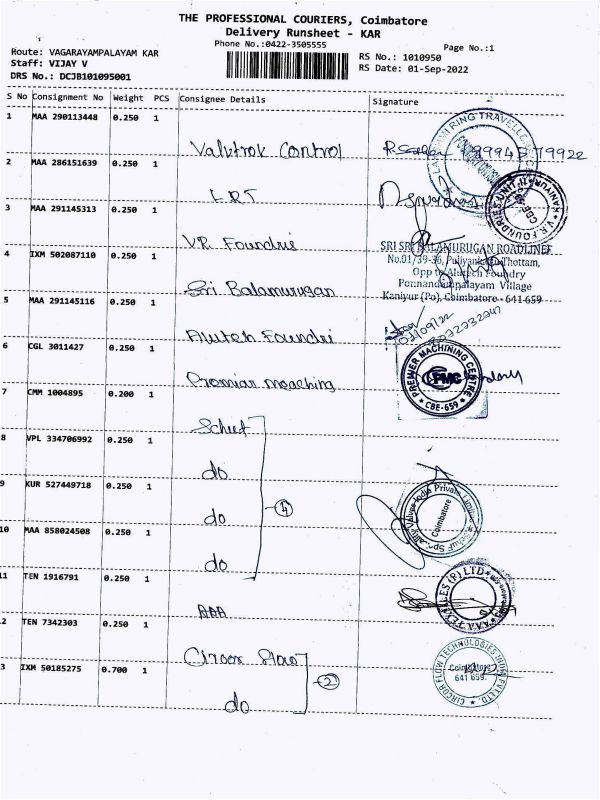 THE PROFESSIONAL COURIERS, Coimbatore
Delivery Runsheet - KAR
Phone No.:0422-3505555
Page No.:1
Route: VAGARAYAMPALAYAM KAR
Staff: VIJAY V
DRS No.: DCJB101095001
RS No.: 1010950
RS Date: 01-Sep-2022
S No Consignment No Weight PCS Consignee Details Signature
1 MAA 290113448 0.250 1
Valutrok Control
2 MAA 286151639 0.250 1
LRT
3 MAA 291145313 0.250 1
VR Foundri
4 IXM 502087110 0.250 1
Sri Balamurugan
SRI SRI BALAMURUGAN ROADLINES
No.01/39-36, Puliyankattu Thottam,
Opp to Alutech Foundry
Ponnandampalayam Village
Kaniyur (Po), Coimbatore - 641 659
5 MAA 291145116 0.250 1
Alutek Foundri
01/09/22
6 CGL 3011427 0.250 1
Premiar meaching
PREMIER MACHINING CENTRE
PMC
CBE-659
7 CMM 1004895 0.200 1
Scheef
8 VPL 334706992 0.250 1
do
9 KUR 527449718 0.250 1
do
4
10 MAA 858024508 0.250 1
do
Coimbatore
11 TEN 1916791 0.250 1
AAA
12 TEN 7342303 0.250 1
Circor Flow
13 IXM 50185275 0.700 1
do
2
CIRCOR FLOW TECHNOLOGIES INDIA PVT LTD
Coimbatore
641 659.